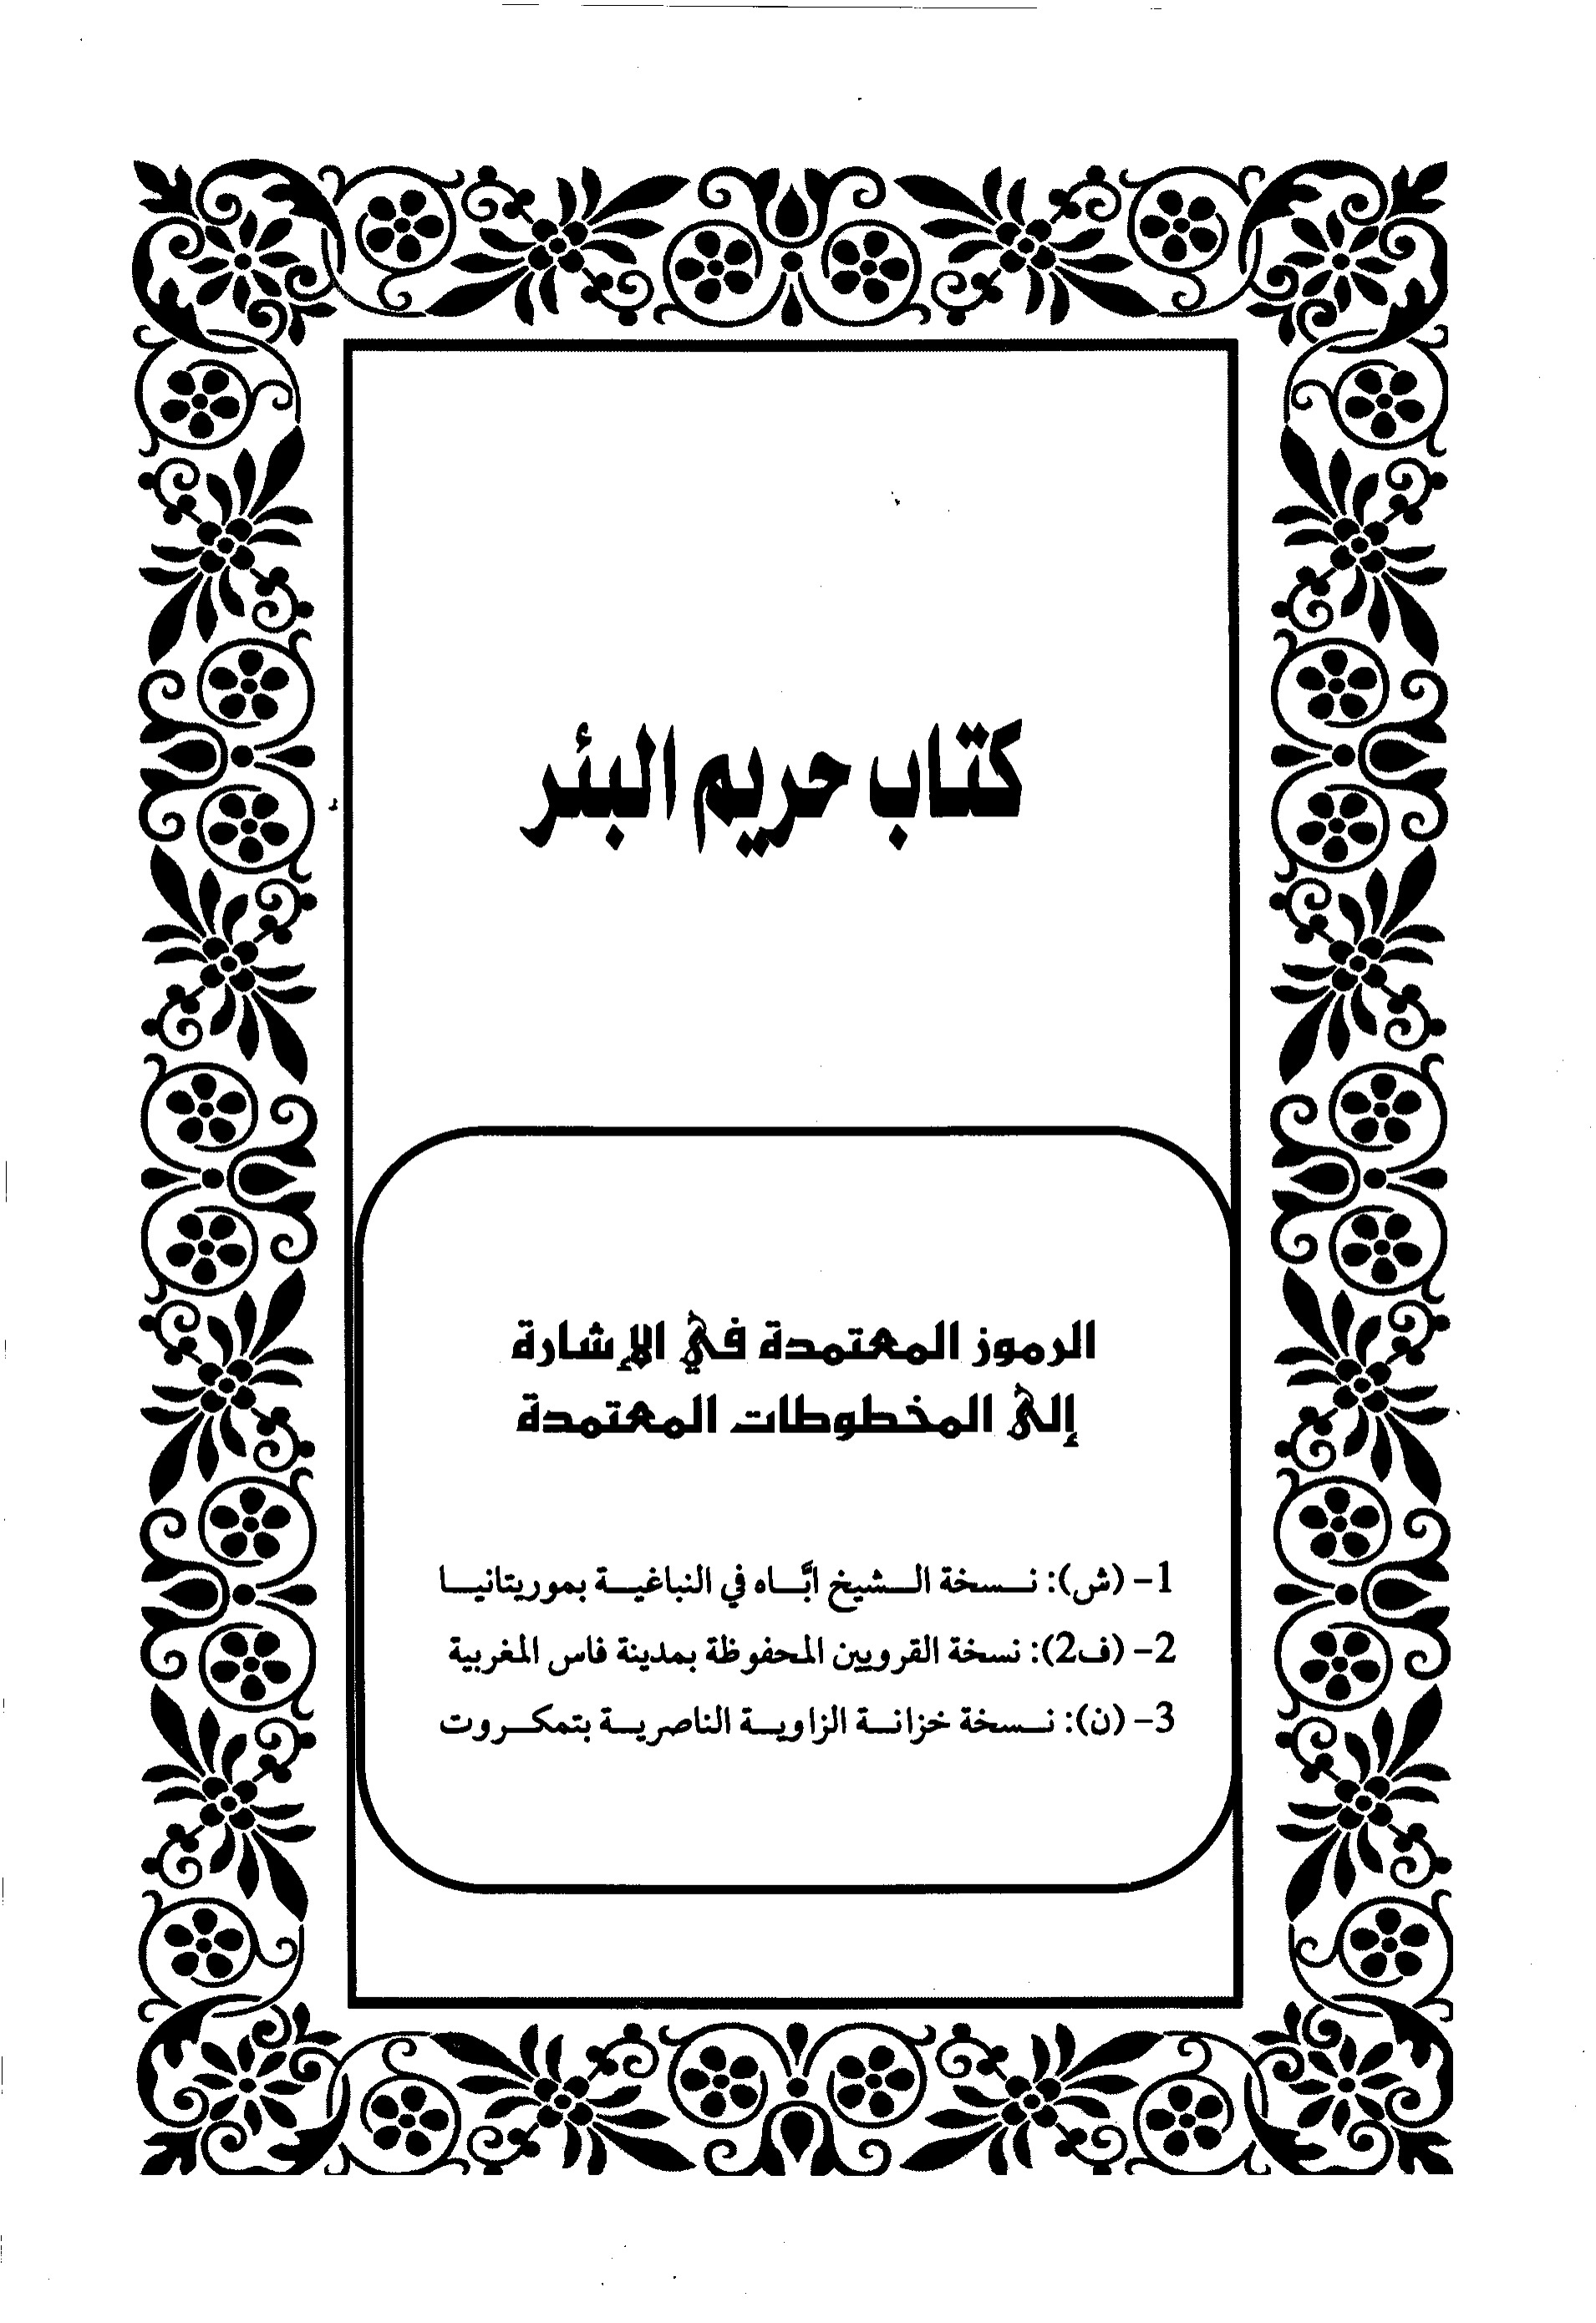 كتاب حريم البئر
الرموز المعتمدة في الإشارة
إلى المخطوطات المعتمدة
1- (ش): نسخة الشيخ ابَّاه في النباغية بموريتانيا
2- (ف2): نسخة القرويين المحفوظة بمدينة فاس المغربية
3- (ن): نسخة خزانة الزاوية الناصرية بتمكروت